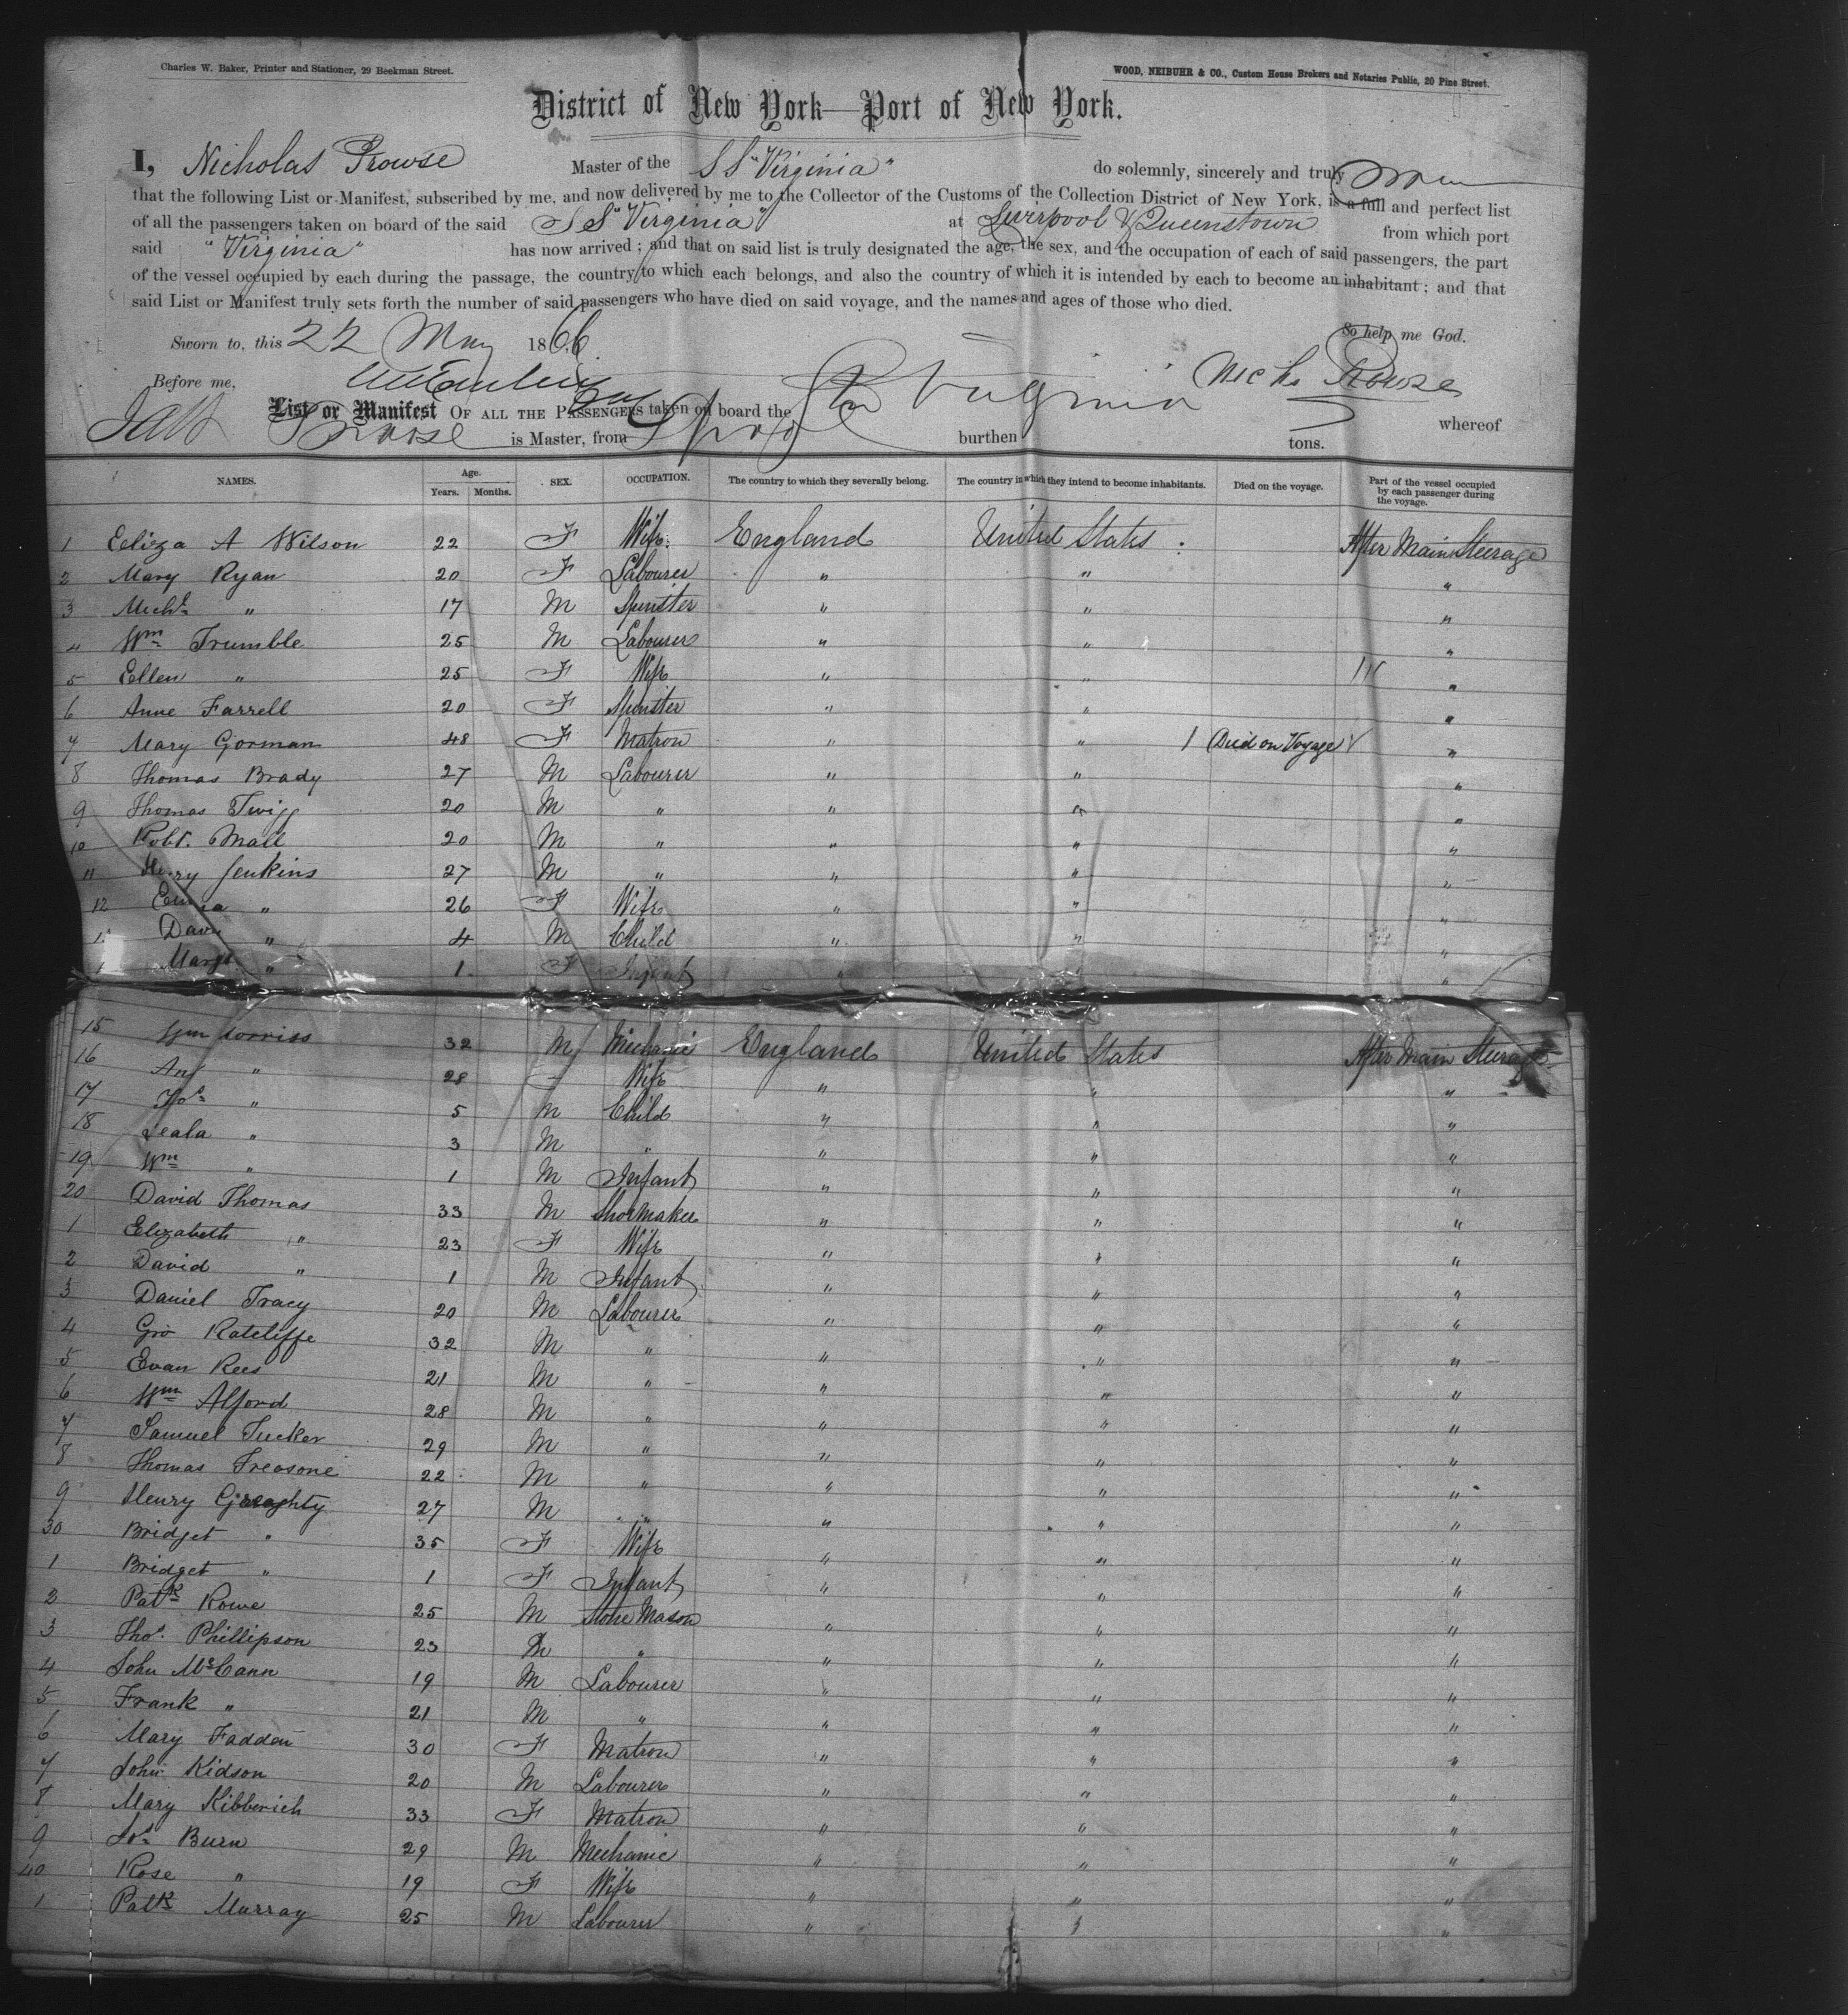 Charles W. Baker, Printer and Stationer, 29 Beekman Street.
WOOD, NEIBUHR & CO., Custom House Brokers and Notaries Public, 20 Pine Street.
District of New York—Port of New York.
I, Nicholas Prowse Master of the S S "Virginia" do solemnly, sincerely and truly
that the following List or Manifest, subscribed by me, and now delivered by me to the Collector of the Customs of the Collection District of New York, is a full and perfect list
of all the passengers taken on board of the said S S "Virginia" at Liverpool & Queenstown from which port
said "Virginia" has now arrived; and that on said list is truly designated the age, the sex, and the occupation of each of said passengers, the part
of the vessel occupied by each during the passage, the country to which each belongs, and also the country of which it is intended by each to become an inhabitant; and that
said List or Manifest truly sets forth the number of said passengers who have died on said voyage, and the names and ages of those who died.
So help me God.
Sworn to, this 22 May 1866
Before me, Nichs Prowse
List or Manifest OF ALL THE PASSENGERS taken on board the Str Virginia whereof
Prowse is Master, from burthen tons.
NAMES. Age. Years. Months. SEX. OCCUPATION. The country to which they severally belong. The country in which they intend to become inhabitants. Died on the voyage. Part of the vessel occupied by each passenger during the voyage.
1 Eeliza A Wilson 22 F Wife England United States After Main Steerage
2 Mary Ryan 20 F Labourer " " "
3 Michl " 17 M Spinster " " "
4 Wm Trumble 25 M Labourer " " "
5 Ellen " 25 F Wife " " "
6 Anne Farrell 20 F Spinster " " "
7 Mary Gorman 48 F Matron " " 1 Died on Voyage "
8 Thomas Brady 27 M Labourer " " "
9 Thomas Twigg 20 M " " " "
10 Robt. Mall 20 M " " " "
11 Henry Jenkins 27 M " " " "
12 Emma " 26 F Wife " " "
Davd " 4 M Child " " "
Margt " 1 F Infant " " "
15 Wm 32 M Mechanic England United States After Main Steerage
16 Ann " 28 Wife " " "
17 " 5 M Child " " "
18 " 3 M " " " "
19 Wm " 1 M Infant " " "
20 David Thomas 33 M Shoemaker " " "
1 Elizabeth " 23 F Wife " " "
2 David " 1 M Infant " " "
3 Daniel Tracy 20 M Labourer " " "
4 Geo Ratcliffe 32 M " " " "
5 Evan Rees 21 M " " " "
6 Wm Alford 28 M " " " "
7 Samuel Tucker 29 M " " " "
8 Thomas 22 M " " " "
9 Henry Geraghty 27 M " " " "
30 Bridget " 35 F Wife " " "
1 Bridget " 1 F Infant " " "
2 Patk Rowe 25 M Stone Mason " " "
3 Thos. Phillipson 23 M " " " "
4 John McCann 19 M Labourer " " "
5 Frank " 21 M " " " "
6 Mary Fadden 30 F Matron " " "
7 John Kidson 20 M Labourer " " "
8 Mary Kibberich 33 F Matron " " "
9 Jos Burn 29 M Mechanic " " "
40 Rose " 19 F Wife " " "
1 Patk Murray 25 M Labourer " " "